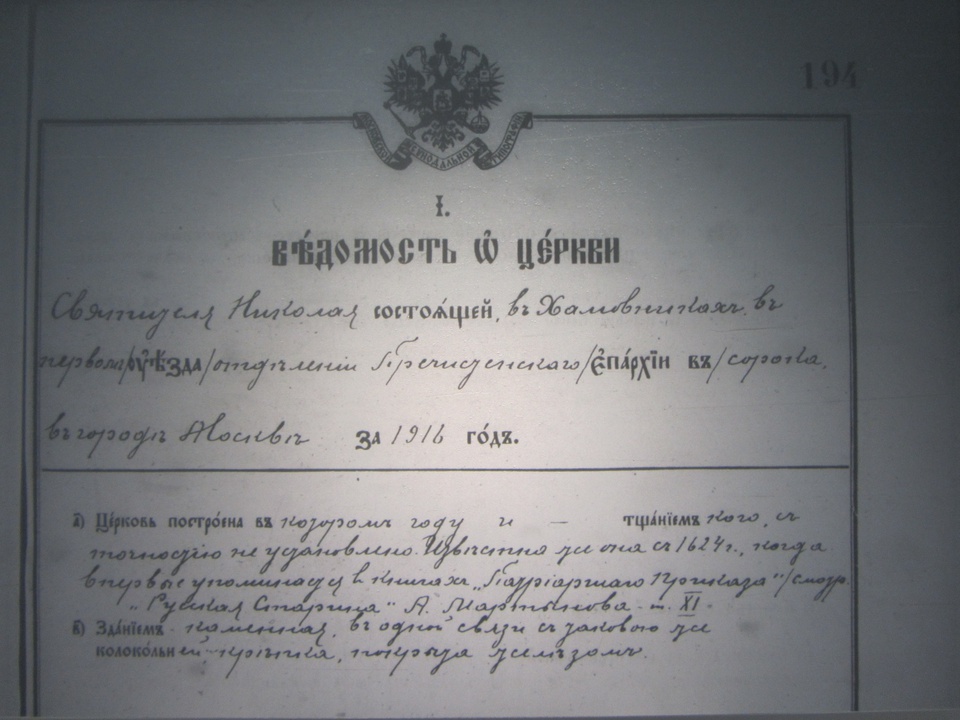 194
СИНОДАЛЬНОЙ ТИПОГРАФІИ
І.
ВѢ́ДОМОСТЬ Ѽ ЦЕ́РКВИ
Святителя Николая СОСТОЯ́ЩЕЙ, въ Хамовникахъ, въ
первомъ/ОУѢ́ЗДА/отдѣленіи Пречистенскаго/ЄПА́РХІИ ВЪ/сорока,
въ городѣ Москвѣ ЗА 1916 ГО́ДЪ.
а) ЦЕ́РКОВЬ ПОСТРО́ЕНА ВЪ которомъ году и — ТЩА́НІЕМЪ кого, съ
точностію не установлено. Извѣстна же она съ 1624 г., когда
впервые упоминается въ книгахъ „Патріаршаго Приказа"/смотр.
„Русская Старина" А. Мартынова – т. XI.
в) ЗДА́НІЕМЪ каменная, въ одной связи съ таковою же
КОЛОКО́ЛЬНей – крѣпка, покрыта желѣзомъ.